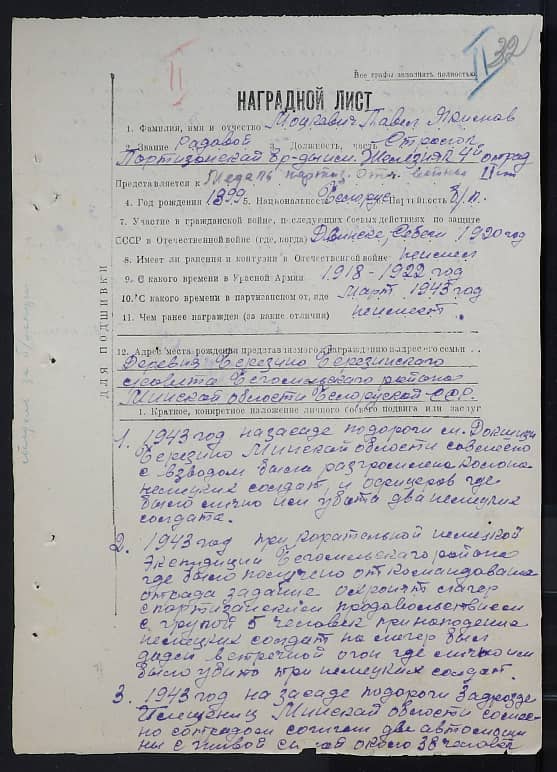 32
II
II
Все графы заполнять полностью
НАГРАДНОЙ ЛИСТ
1. Фамилия, имя и отчество Моцкевич Павел
2. Звание Радавой 3. Должность, часть
Партизонской бр-ды им. Железняк 4й отряд
Представляется к Медаль партиз. Отч. войны II ст
4. Год рождения 1899 5. Национальность Белорус Партийность б/п.
7. Участие в гражданской войне, последующих боевых действиях по защите
СССР в Отечественной войне (где, когда) Двинске, 1920 год
8. Имеет ли ранения и контузии в Отечественной войне неимеет
9. С какого времени в Красной Армии 1918-1922 год
10. С какого времени в партизанском от, где Март 1943 год
11. Чем ранее награжден (за какие отличия) неимеет.
ДЛЯ ПОДШИВКИ
12. Адрес места рождения представляемого к награждению и адрес его семьи
Деревня Березино Березинского
совета Бегомльского района
Минской области Белоруской ССР.
1. Краткое, конкретное изложение личного боевого подвига или заслуг
1. 1943 год на засаде подороги м. Докшици
Березино Минской области совмесно
с взводом была разгромлена колона
немецких солдат, и офицеров где
было лично им убита два немецких
солдата.
2. 1943 год при корательной немецкой
экспидиции Бегомльского района
где было получено от командования
отряда задание охронят лагер
спартизанским продовольствием
с групой 5 человек при нападение
немецких солдат на лагер был
даден встречной огон где лично им
было убито три немецких солдат.
3. 1943 год на засаде подороги
Плещениц Минской области совмес-
но сотрядом сожгли две автомаши
ны с живой силой около 38 человек